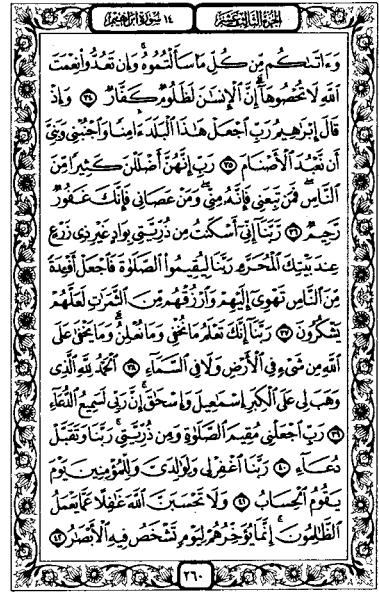 الجزء الثالث عشر ١٤ سورة ابراهيم
وَءَاتَىٰكُم مِّن كُلِّ مَا سَأَلْتُمُوهُ ۚ وَإِن تَعُدُّوا۟ نِعْمَتَ
ٱللَّهِ لَا تُحْصُوهَآ ۗ إِنَّ ٱلْإِنسَٰنَ لَظَلُومٌ كَفَّارٌ ٣٤ وَإِذْ
قَالَ إِبْرَٰهِيمُ رَبِّ ٱجْعَلْ هَٰذَا ٱلْبَلَدَ ءَامِنًا وَٱجْنُبْنِى وَبَنِىَّ
أَن نَّعْبُدَ ٱلْأَصْنَامَ ٣٥ رَبِّ إِنَّهُنَّ أَضْلَلْنَ كَثِيرًا مِّنَ
ٱلنَّاسِ ۖ فَمَن تَبِعَنِى فَإِنَّهُۥ مِنِّى ۖ وَمَنْ عَصَانِى فَإِنَّكَ غَفُورٌ
رَّحِيمٌ ٣٦ رَّبَّنَآ إِنِّىٓ أَسْكَنتُ مِن ذُرِّيَّتِى بِوَادٍ غَيْرِ ذِى زَرْعٍ
عِندَ بَيْتِكَ ٱلْمُحَرَّمِ رَبَّنَا لِيُقِيمُوا۟ ٱلصَّلَوٰةَ فَٱجْعَلْ أَفْـِٔدَةً
مِّنَ ٱلنَّاسِ تَهْوِىٓ إِلَيْهِمْ وَٱرْزُقْهُم مِّنَ ٱلثَّمَرَٰتِ لَعَلَّهُمْ
يَشْكُرُونَ ٣٧ رَبَّنَآ إِنَّكَ تَعْلَمُ مَا نُخْفِى وَمَا نُعْلِنُ ۗ وَمَا يَخْفَىٰ عَلَى
ٱللَّهِ مِن شَىْءٍ فِى ٱلْأَرْضِ وَلَا فِى ٱلسَّمَآءِ ٣٨ ٱلْحَمْدُ لِلَّهِ ٱلَّذِى
وَهَبَ لِى عَلَى ٱلْكِبَرِ إِسْمَٰعِيلَ وَإِسْحَٰقَ ۚ إِنَّ رَبِّى لَسَمِيعُ ٱلدُّعَآءِ
٣٩ رَبِّ ٱجْعَلْنِى مُقِيمَ ٱلصَّلَوٰةِ وَمِن ذُرِّيَّتِى ۚ رَبَّنَا وَتَقَبَّلْ
دُعَآءِ ٤٠ رَبَّنَا ٱغْفِرْ لِى وَلِوَٰلِدَىَّ وَلِلْمُؤْمِنِينَ يَوْمَ
يَقُومُ ٱلْحِسَابُ ٤١ وَلَا تَحْسَبَنَّ ٱللَّهَ غَٰفِلًا عَمَّا يَعْمَلُ
ٱلظَّٰلِمُونَ ۚ إِنَّمَا يُؤَخِّرُهُمْ لِيَوْمٍ تَشْخَصُ فِيهِ ٱلْأَبْصَٰرُ ٤٢
٢٦٠